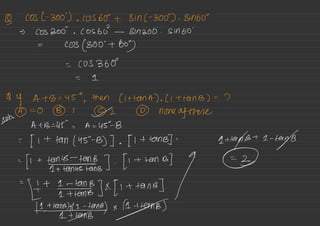 Q cos(-300°) . cos60° + sin(-300°) . sin60°
⇒ cos300° . cos60° - sin300 . sin60°
= cos(300° + 60°)
= cos360°
= 1
Q4 A+B=45°, then (1+tanA).(1+tanB) = ?
(A) =0 (B) 1 (C) 2 (D) none of these
Soln A+B=45° , A=45°-B
= [1 + tan(45°-B)] . [1 + tanB]
= [1 + tan45 - tanB / 1 + tan45 tanB] . [1 + tanB]
= [1 + 1 - tanB / 1 + tanB] × [1 + tanB]
(1 + tanB) + (1 - tanB) / 1 + tanB × (1 + tanB)
1 + tanB + 1 - tanB
= 2